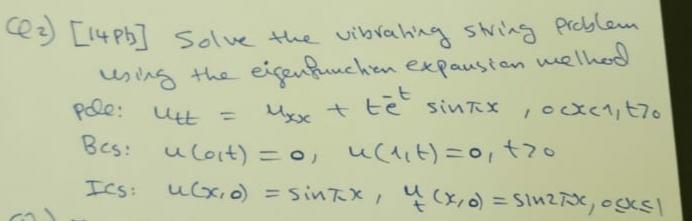 Q2) [14pts] Solve the vibrating string problem
using the eigenfunction expansion method
pde: u_tt = u_xx + te^-t sinπx , 0<x<1, t>0
BCs: u(0,t) = 0, u(1,t)=0, t>0
ICs: u(x,0) = sinπx, u_t(x,0) = sin2πx, 0≤x≤1